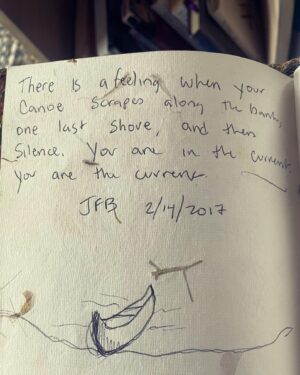 There is a feeling when your
Canoe scrapes along the bank,
one last shove, and then
Silence. You are in the current
You are the current.
JFB 2/14/2017